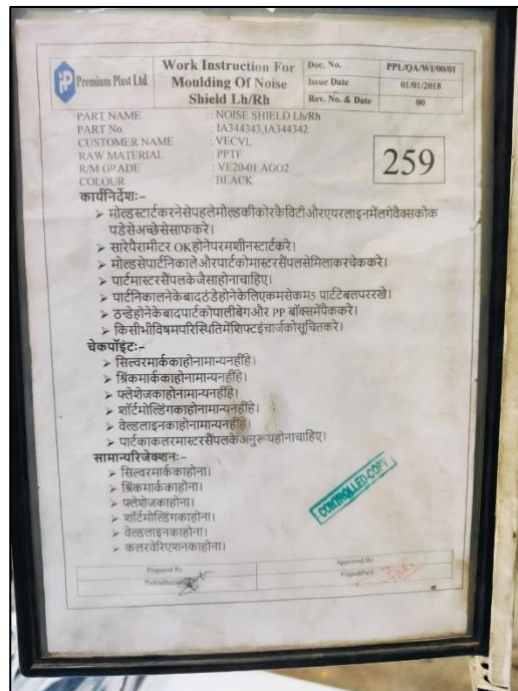 Premium Plast Ltd.
Work Instruction For Moulding Of Noise Shield Lh/Rh
Doc. No. PPL/QA/WI/00/01
Issue Date 01/01/2018
Rev. No. & Date 00
PART NAME : NOISE SHIELD Lh/Rh
PART No : IA344343,IA344342
CUSTOMER NAME : VECVL
RAW MATERIAL : PPTF
R/M GRADE : VE20-01 AGO2
COLOUR : BLACK
259
कार्यनिर्देशः-
➢ मोल्डस्टार्टकरनेसेपहलेमोल्डकीकोरकैविटीऔरएयरलाइनमेंलगेवैक्सकोक
पडेसेअच्छेसेसाफकरे।
➢ सारेपैरामीटर OKहोनेपरमशीनस्टार्टकरे।
➢ मोल्डसेपार्टनिकालेऔरपार्टकोमास्टरसैंपलसेमिलाकरचेककरे।
➢ पार्टमास्टरसैंपलकेजैसाहोनाचाहिए।
➢ पार्टनिकालनेकेबादठंडेहोनेकेलिएकमसेकम5 पार्टटेबलपररखे।
➢ ठन्डेहोनेकेबादपार्टकोपालीबेगऔर PP बॉक्समेंपैककरे।
➢ किसीभीविषमपरिस्थितिमेंशिफ्टइंचार्जकोसूचितकरे।
चेकपॉइंटः-
➢ सिल्वरमार्ककाहोनामान्यनहींहै।
➢ श्रिंकमार्ककाहोनामान्यनहींहै।
➢ फ्लेशेजकाहोनामान्यनहींहै।
➢ शॉर्टमोल्डिंगकाहोनामान्यनहींहै।
➢ वेल्डलाइनकाहोनामान्यनहींहै।
➢ पार्टकाकलरमास्टरसैंपलकेअनुरूपहोनाचाहिए।
सामान्यरिजेक्शनः-
➢ सिल्वरमार्ककाहोना।
➢ श्रिंकमार्ककाहोना।
➢ फ्लेशेजकाहोना।
➢ शॉर्टमोल्डिंगकाहोना।
➢ वेल्डलाइनकाहोना।
➢ कलरवेरिएशनकाहोना।
CONTROLLED COPY
Prepared By
Approved By